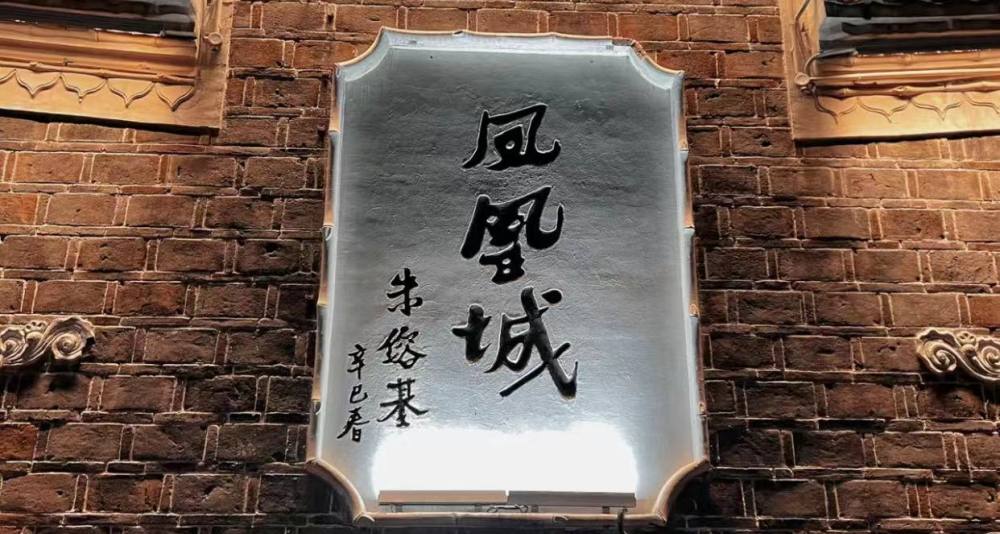 凤凰城
朱镕基
辛巳春